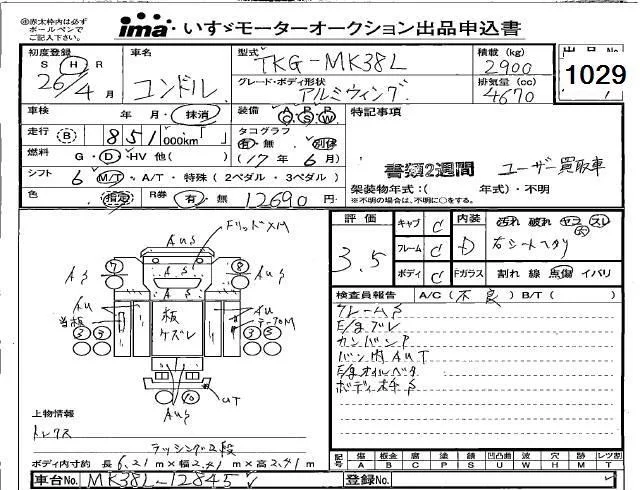 ㊟赤太枠内は必ず
ボールペンで
ご記入下さい。
ima いすゞモーターオークション出品申込書
初度登録
S H R
26/4月
車名
コンドル
型式
TKG-MK38L
グレード・ボディ形状
アルミウィング
積載 (kg)
2900
排気量 (cc)
4670
出品 No.
1029
車検 年 月・抹消
装備 A P R
C S W
特記事項
走行 B 851,000km
タコグラフ
有・無 別体
(17年6月)
燃料 G・D・HV 他( )
書類2週間
ユーザー買取車
シフト 6 M/T・A/T・特殊(2ペダル・3ペダル)
架装物年式:( 年式)・不明
※不明の場合は、不明に○をする。
色 指定 R券 有・無 12690円
評価
3.5
キャブ C
フレーム C
ボディ C
内装 D
汚れ 破れ ヤコ スレ
右シートヘタリ
Fガラス 割れ 線 飛傷 イバリ
検査員報告 A/C(不良) B/T( )
フレームS
E/gズレ
カンバンP
バン内AUT
E/gオイルベタ
ボディ枠S
AuS
AS
AS
Au
Au
板
ケズレ
UT
AuS
上物情報
トレクス
ラッシング2段
ボディ内寸約 長6.21m×幅2.41m×高2.41m
記号 傷 板金 腐 塗 錆 凹凸曲 波 穴 跡 レツ割
A B C P S U W H M T
車台No. MK38L-12845
登録No.